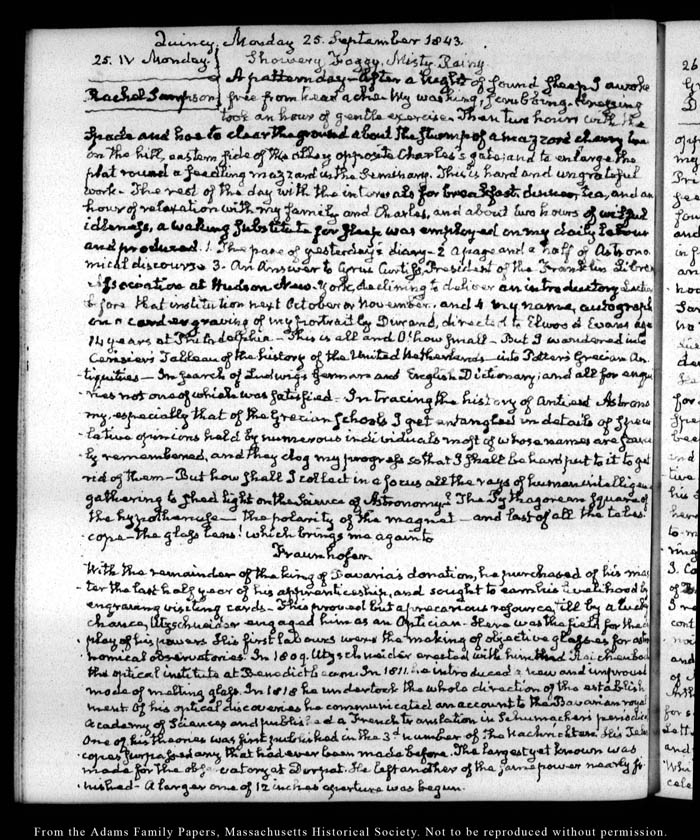 Quincy, Monday 25. September 1843.
25. IV Monday. Showery, Foggy, Misty, Rainy.
A pattern day — After a night of sound sleep I awoke
Rachel Sampson free from headache. My washing, scrubbing, dressing
took an hour of gentle exercise. Then two hours with the
spade and hoe to clear the ground about the stump of a mazzard cherry tree
on the hill, eastern side of the alley opposite Charles's gate; and to enlarge the
plat round a seedling mazzard in the Seminary. This is hard and ungrateful
work — The rest of the day with the intervals for breakfast, dinner, tea, and an
hour of relaxation with my family and Charles, and about two hours of wilful
idleness, a waking substitute for sleep was employed on my daily labour
and produced. 1. The page of yesterday's diary — 2 a page and a half of Astrono-
mical discourse 3. An Answer to Cyrus Curtiss, President of the Franklin Library
Association at Hudson New-York, declining to deliver an introductory Lecture
before that institution next October or November. and 4 my name, autograph
on a card engraving of my portrait by Durand, directed to Elwood Evans age
14 years at Philadelphia — This is all and O! how small — But I wandered into
Cerisier's Tableau of the history of the United Netherlands — into Potter's Grecian An-
tiquities — In search of Ludwig's German and English Dictionary; and all for enqui-
ries not one of which was satisfied. In tracing the history of Antient Astrono-
my, especially that of the Grecian Schools I get entangled in details of specu-
lative opinions held by numerous individuals most of whose names are scarce-
ly remembered, and they clog my progress so that I shall be hard put to it to get
rid of them — But how shall I collect in a focus all the rays of human intelligence
gathering to shed light on the Science of Astronomy? The Pythagorean Square of
the hypothenuse — the polarity of the magnet — and last of all the teles-
cope — the glass lens! which brings me again to
Fraunhofer.
With the remainder of the king of Bavaria's donation, he purchased of his mas-
ter the last half year of his apprenticeship, and sought to earn his livelihood by
engraving visiting cards — This proved but a precarious resource, till by a lucky
chance, Utzschneider engaged him as an Optician. Here was the field for the dis-
play of his powers. His first labours were the making of objective glasses for astro-
nomical observatories. In 1809. Utzschneider erected with him and Reichenbach
the optical institute at Benedictbeurn. In 1811. he introduced a new and improved
mode of melting glass. In 1818 he undertook the whole direction of the establish-
ment. Of his optical discoveries he communicated an account to the Bavarian royal
Academy of Sciences and published a French translation in Schumacher's periodical
One of his theories was first published in the 3d number of the Nachrichten. His Teles-
copes surpassed any that had ever been made before. The largest yet known was
made for the observatory at Dorpat. He left another of the same power nearly fi-
nished — A larger one of 12 inches aperture was begun.
From the Adams Family Papers, Massachusetts Historical Society. Not to be reproduced without permission.